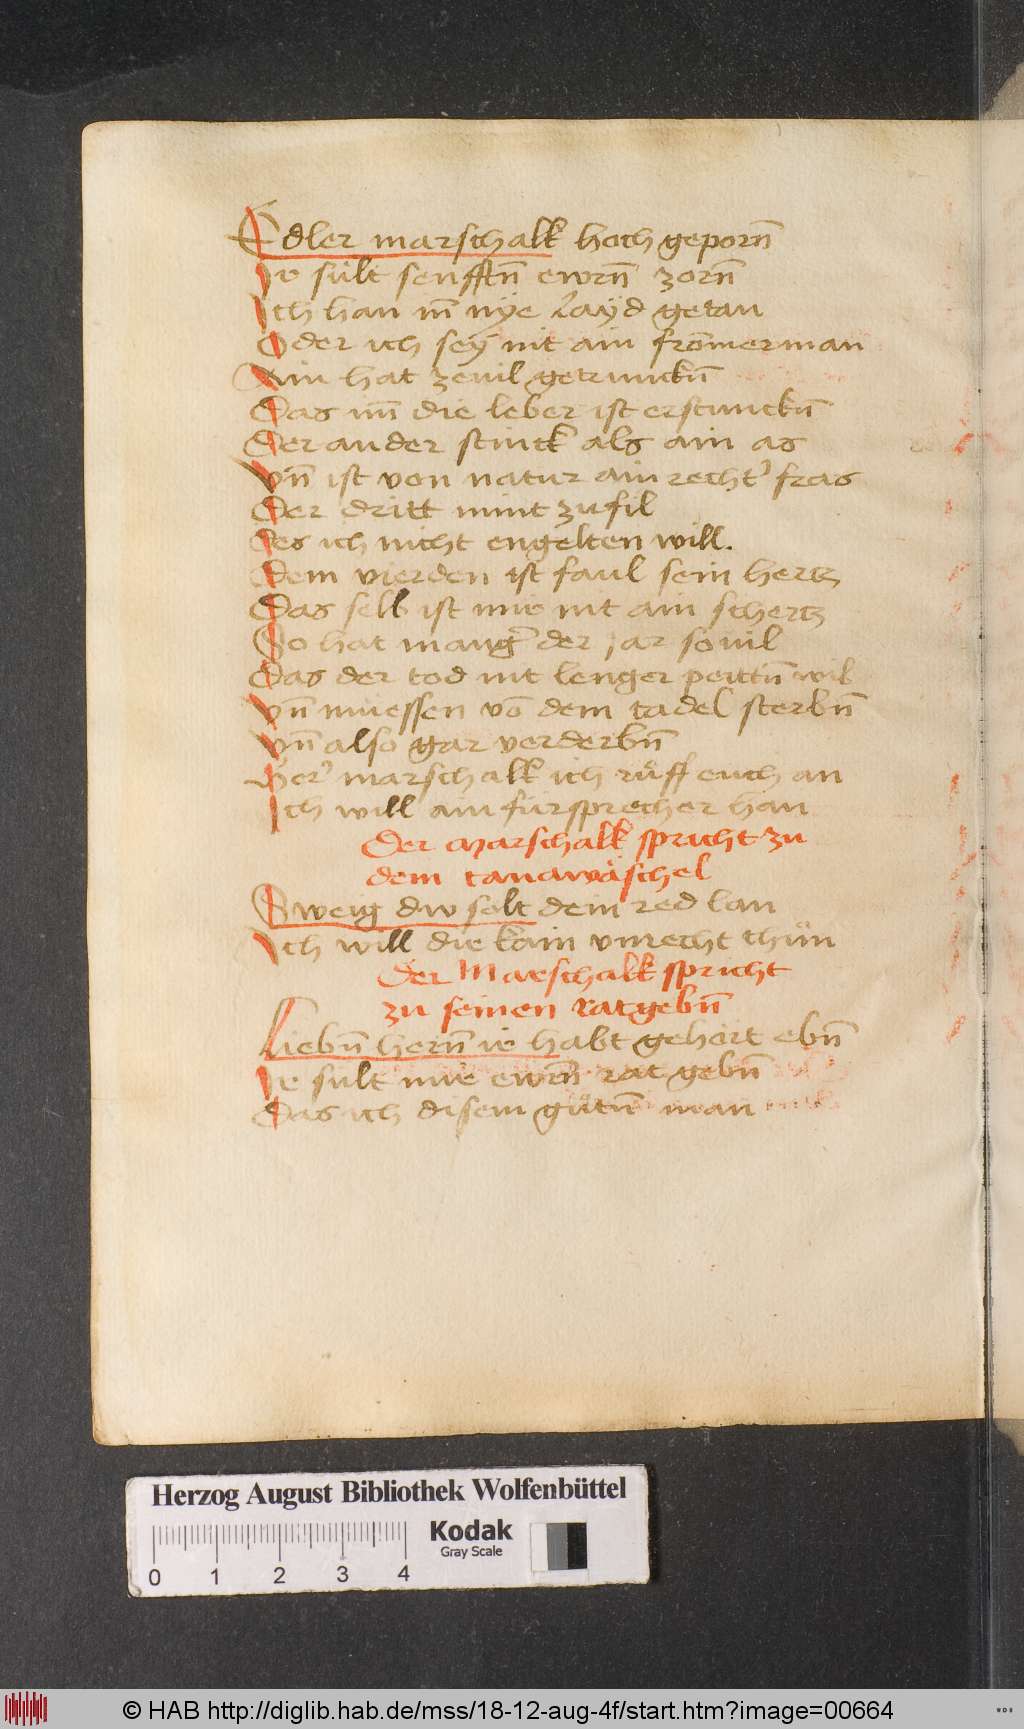 Edler marschalk hoch geporn̄
Ir sült senfftn̄ ewrn̄ zorn̄
Ich han im̄ nÿe layd getan
Oder ich seÿ nit ain from̄er man
Ain hat zeuil getrunckn̄
Das im̄ die leber ist erstunckn̄
Der ander stinck als ain as
Vn̄ ist von natur ain recht' fras
Der dritt nimt zu fil
des ich nicht engelten will.
dem vierden ist faul sein hertz
Das selb ist mir nit ain schertz
So hat mang' der jar souil
Das der tod nit lenger peittn̄ wil
Vn̄ müessen vō dem tadel sterbn̄
Vn̄ also gar verderbn̄
Her' marschalk ich rüff euch an
Ich will ain fürsprecher han
Der Marschalk spricht zu
dem tanawäschel
Sweig dw solt dein red lan
Ich will die kain vnrecht thün
Der Marschalk spricht
zu seinen ratgebn̄
Liebn̄ hern̄ ir habt gehört ebn̄
Ir sult mir ewrn̄ rat gebn̄
das ich disem gütn̄ man
Herzog August Bibliothek Wolfenbüttel
Kodak
Gray Scale
0 1 2 3 4
© HAB http://diglib.hab.de/mss/18-12-aug-4f/start.htm?image=00664